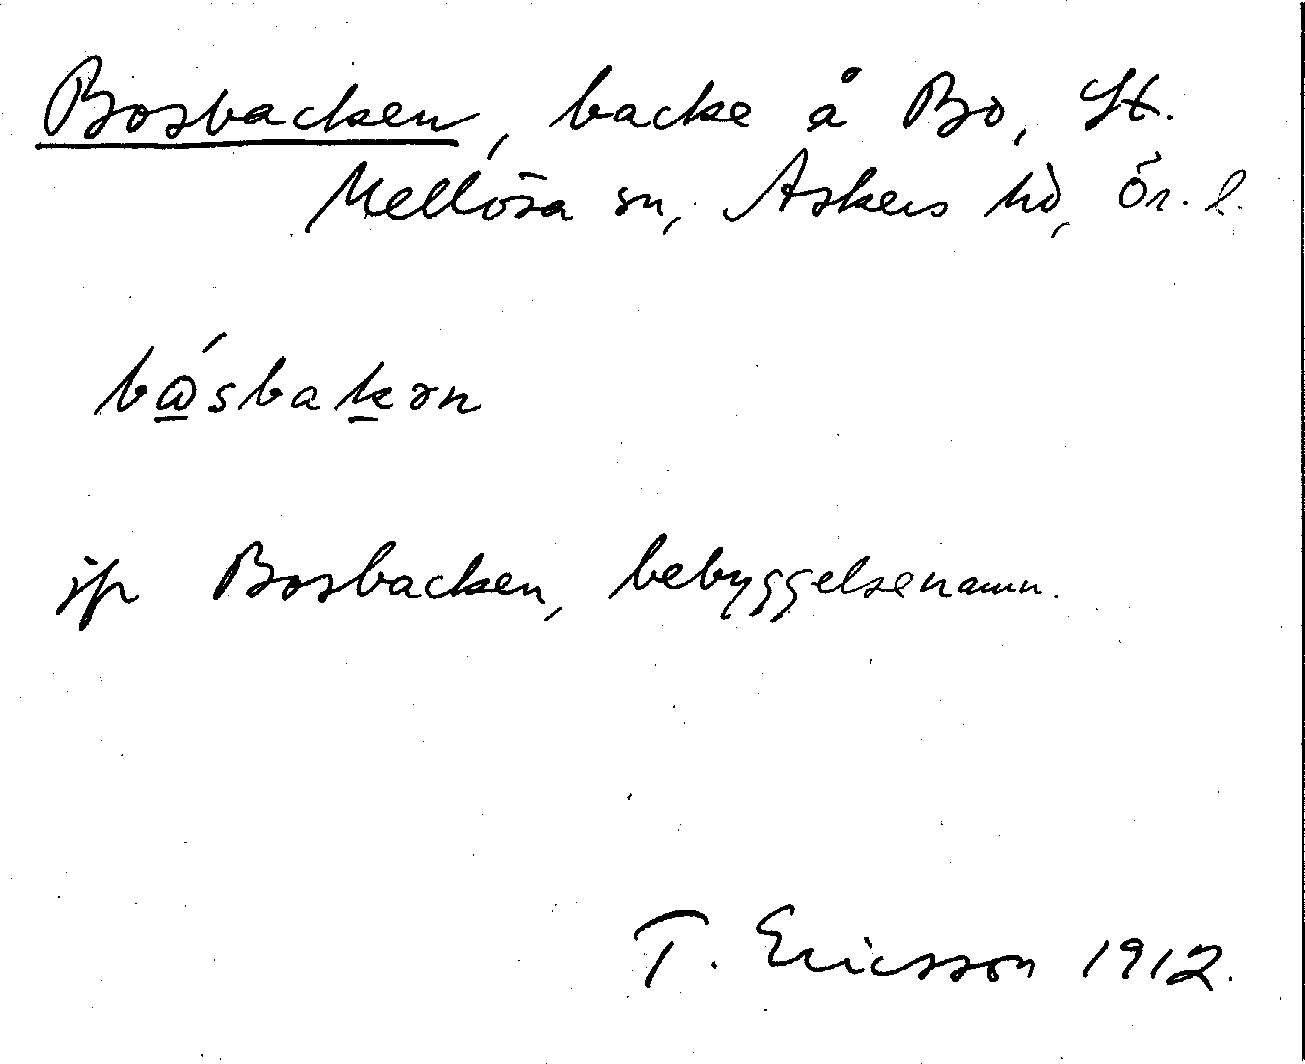 Bosbacken, backe å Bo, St.
Mellösa sn, Askers hd, Ör. l.
bώsbakən
jfr Bosbacken, bebyggelsenamn.
T. Ericsson 1912.